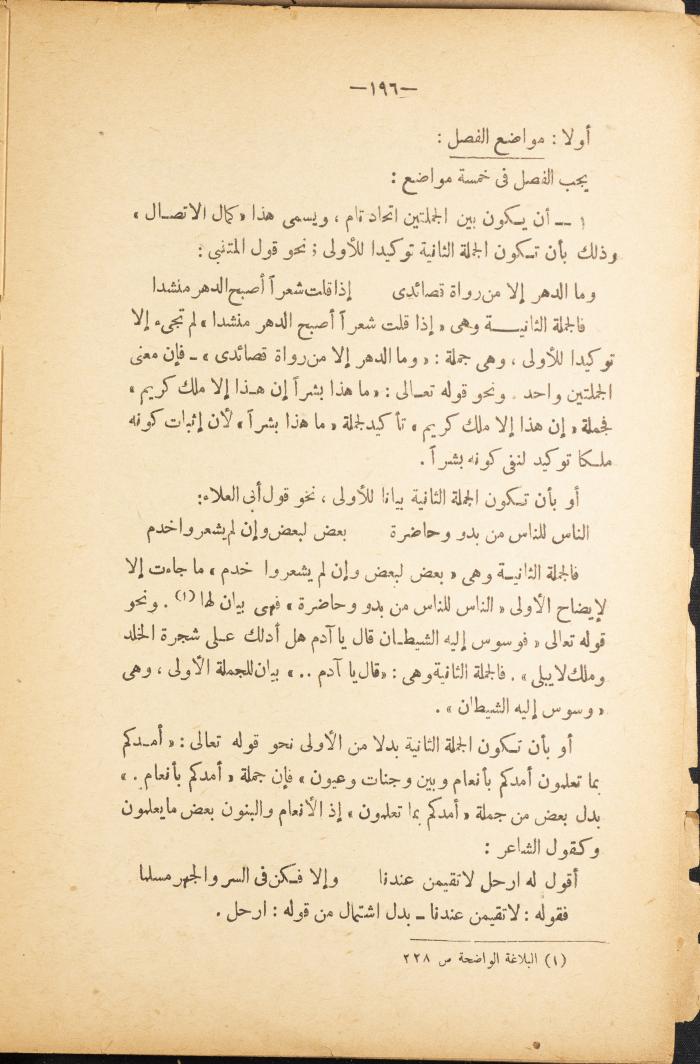 —١٩٦—
أولا : مواضع الفصل :
يجب الفصل فى خمسة مواضع :
١ — أن يكون بين الجملتين اتحاد تام ، ويسمى هذا « كمال الاتصال »
وذلك بأن تكون الجملة الثانية توكيدا للأولى ; نحو قول المتنبى :
وما الدهر إلا من رواة قصائدى إذا قلت شعرآ أصبح الدهر منشدا
فالجملة الثانيـة وهى « إذا قلت شعرآ أصبح الدهر منشدا » لم تجىء إلا
توكيدا للأولى ، وهى جملة : « وما الدهر إلا من رواة قصائدى » ـ فإن معنى
الجملتين واحد . ونحو قوله تعـالى : « ما هذا بشرآ إن هـذا إلا ملك كريم »
فجملة « إن هذا إلا ملك كريم » تأكيد لجملة « ما هذا بشرآ » لأن إثبات كونه
ملكا توكيد لنفى كونه بشرآ .
أو بأن تكون الجملة الثانية بيانا للأولى ، نحو قول أبى العلاء :
الناس للناس من بدو وحاضرة بعض لبعض وإن لم يشعروا خدم
فالجملة الثانيـة وهى « بعض لبعض وإن لم يشعروا خدم » ما جاءت إلا
لإيضاح الأولى « الناس للناس من بدو وحاضرة » فهى بيان لها (١) . ونحو
قوله تعالى « فوسوس إليه الشيطـان قال يا آدم هل أدلك عـلى شجرة الخلد
وملك لا يبلى » . فالجملة الثانية وهى : « قال يا آدم .. » بيان للجملة الأولى ، وهى
« وسوس إليه الشيطان » .
أو بأن تكون الجملة الثانية بدلا من الأولى نحو قوله تعالى : « أمـدكم
بما تعلمون أمدكم بأنعام وبنين وجنات وعيون » فإن جملة « أمدكم بأنعام . »
بدل بعض من جملة « أمدكم بما تعلمون » إذ الأنعام والبنون بعض ما يعلمون
وكقول الشاعر :
أقول له ارحل لا تقيمن عندنا وإلا فكن فى السر والجهر مسلما
فقوله : لا تقيمن عندنا ـ بدل اشتمال من قوله : ارحل .
(١) البلاغة الواضحة ص ٢٢٨